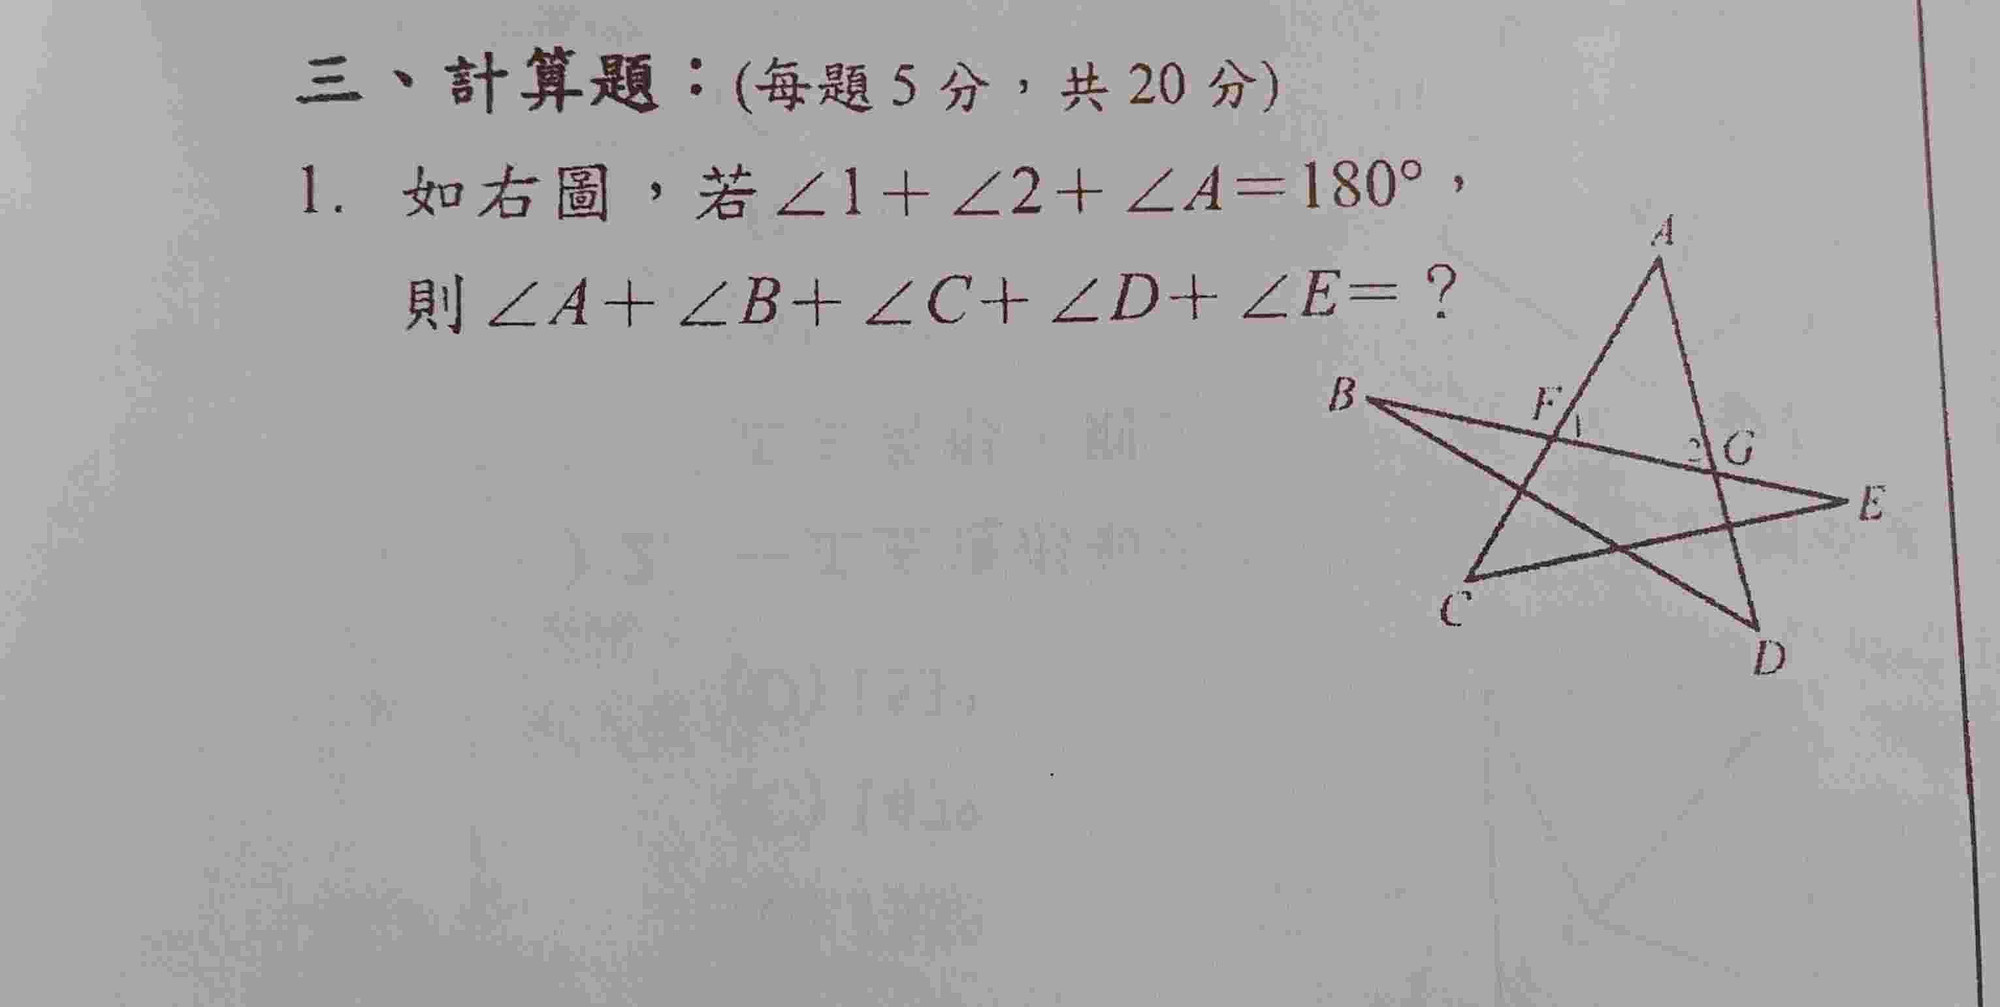 三、計算題：(每題 5 分，共 20 分)
1. 如右圖，若∠1＋∠2＋∠A＝180°，
則∠A＋∠B＋∠C＋∠D＋∠E＝？
A
B
F
1
2
G
E
C
D